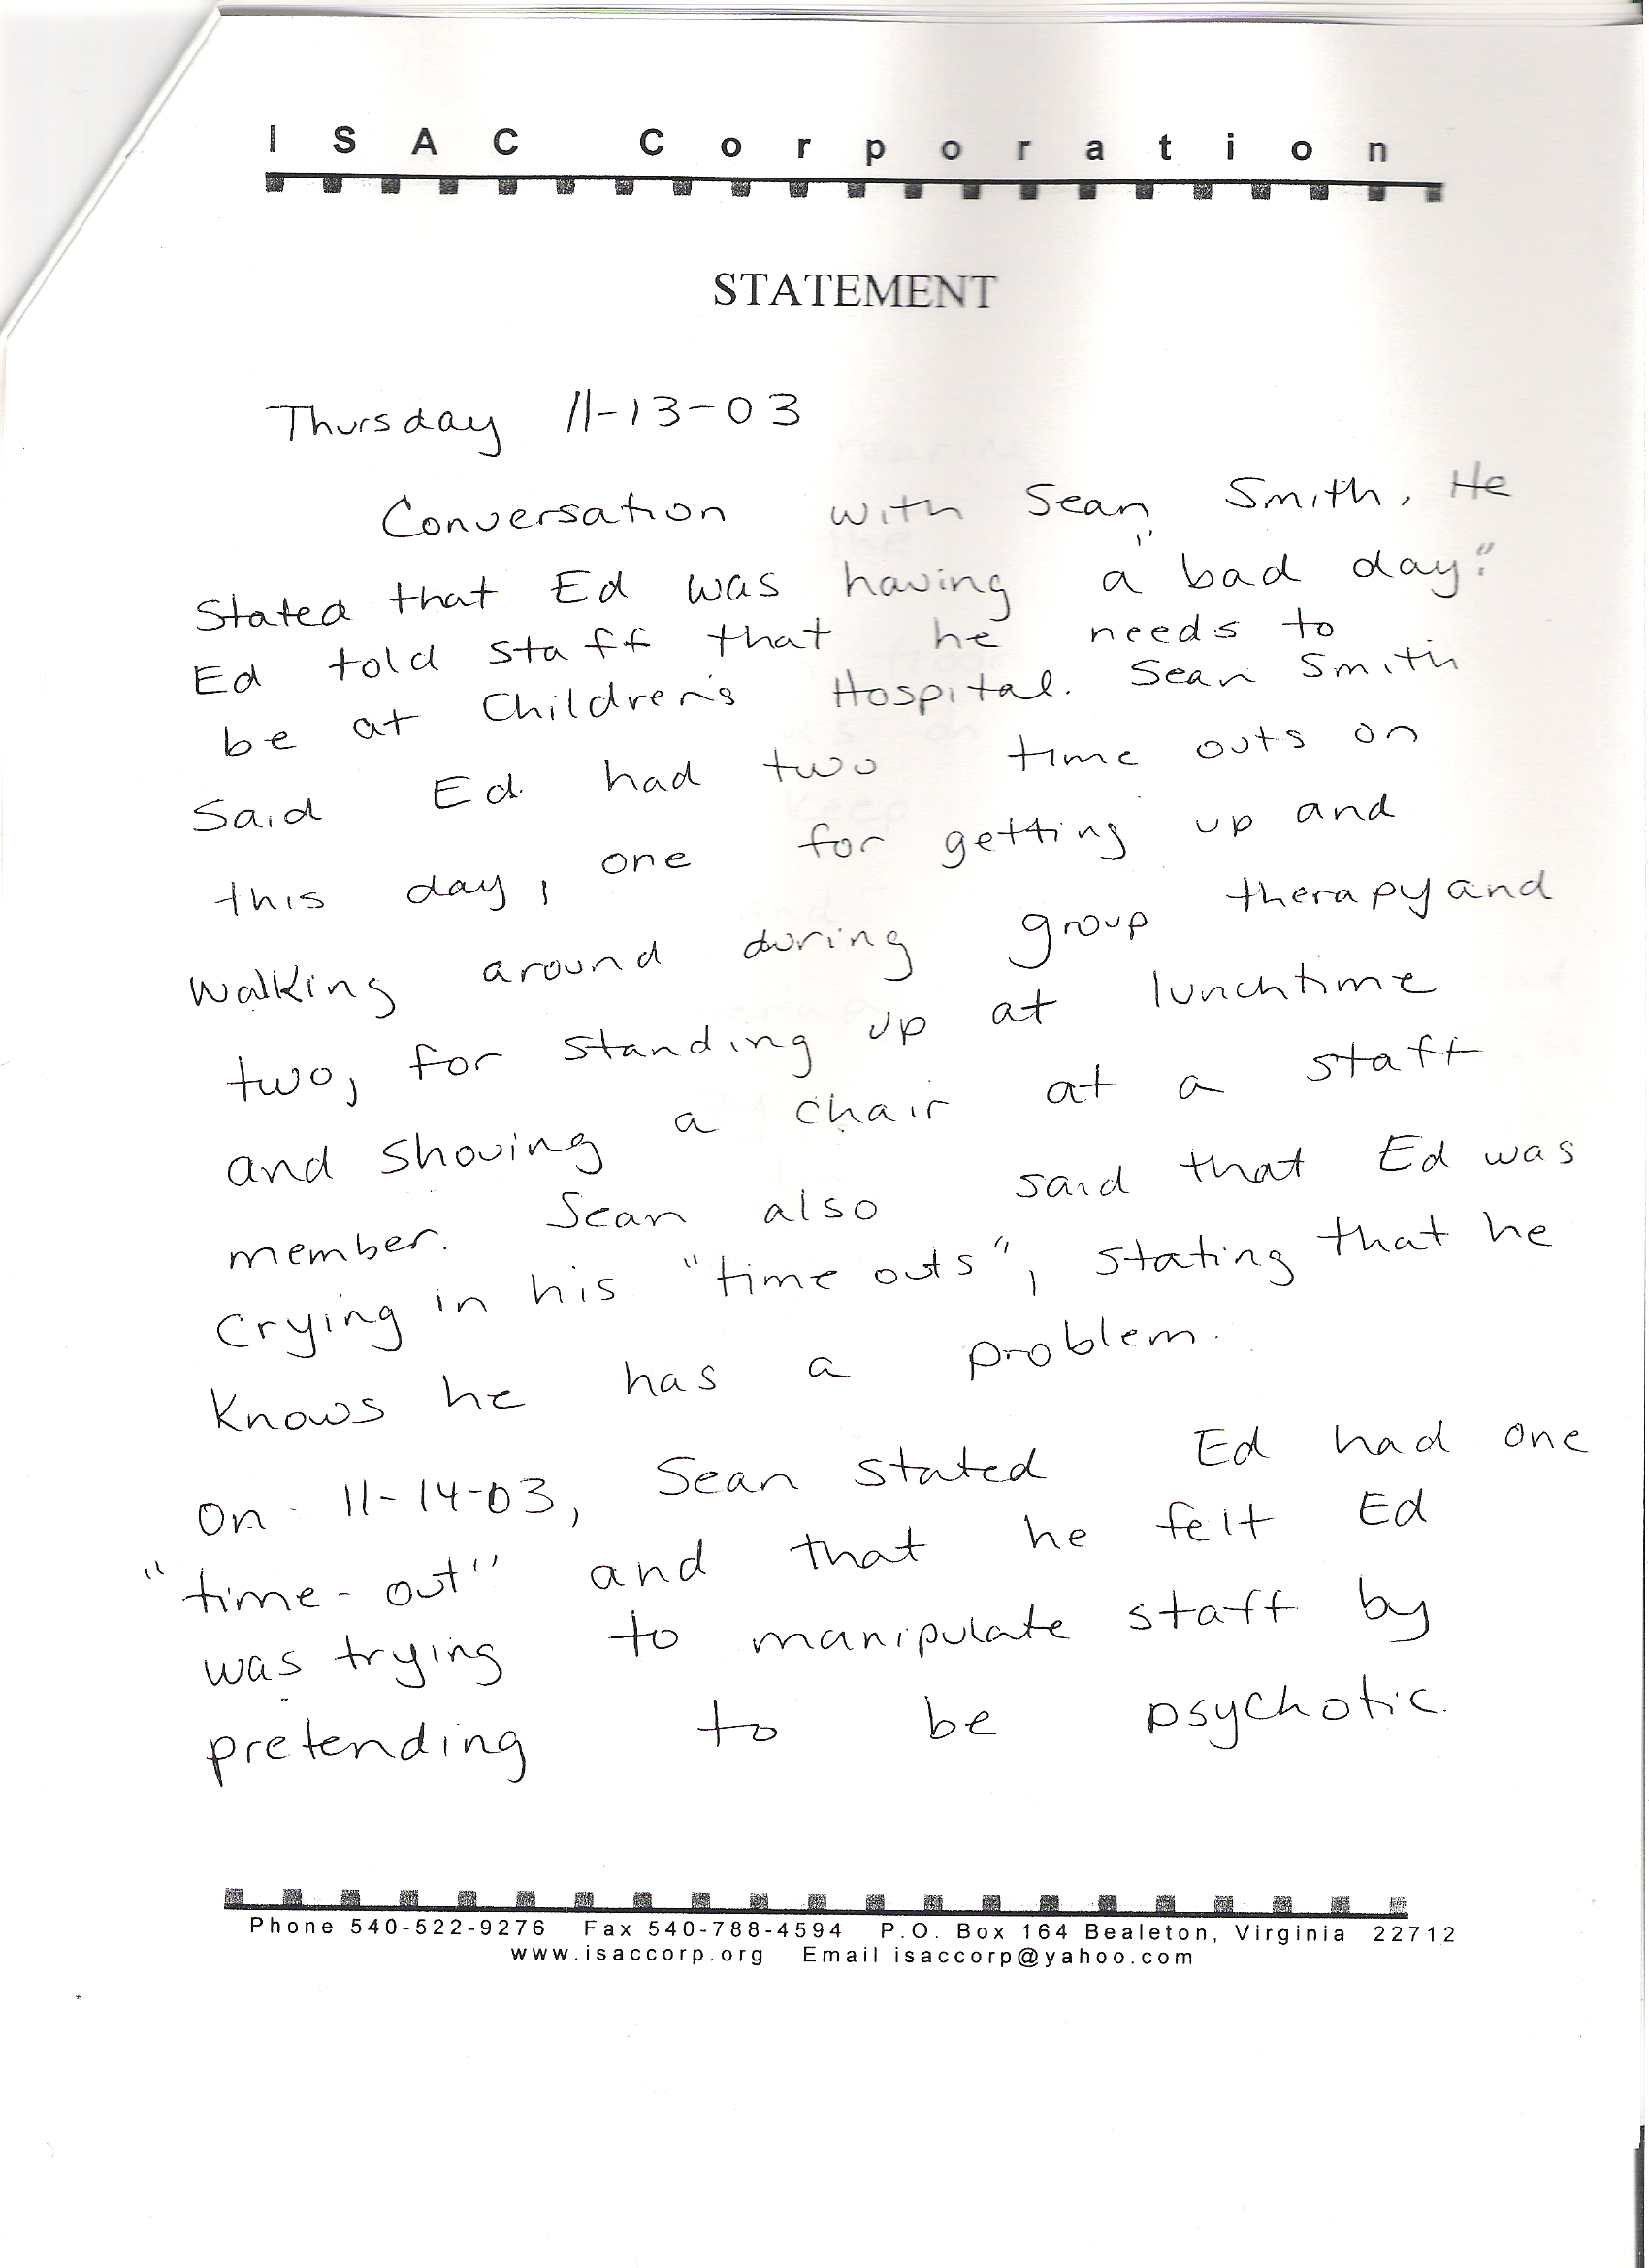 ISAC Corporation
STATEMENT
Thursday 11-13-03
Conversation with Sean Smith. He
stated that Ed was having a "bad day."
Ed told staff that he needs to
be at Children's Hospital. Sean Smith
said Ed had two time outs on
this day, one for getting up and
walking around during group therapy and
two, for standing up at lunchtime
and shoving a chair at a staff
member. Sean also said that Ed was
crying in his "time outs", stating that he
knows he has a problem.
On 11-14-03, Sean stated Ed had one
"time-out" and that he felt Ed
was trying to manipulate staff by
pretending to be psychotic.
Phone 540-522-9276 Fax 540-788-4594 P.O. Box 164 Bealeton, Virginia 22712
www.isaccorp.org Email isaccorp@yahoo.com